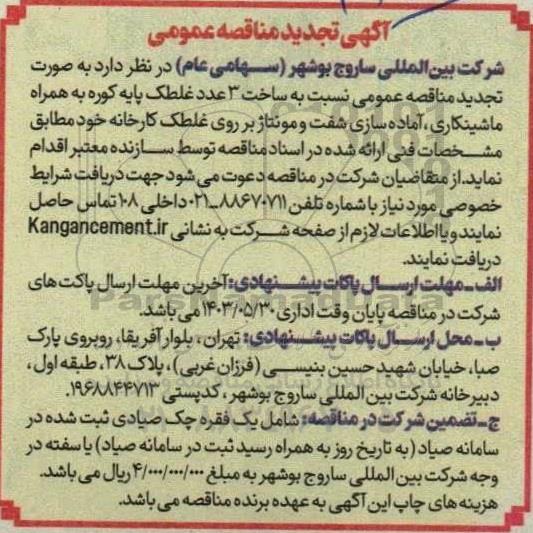 آگهی تجدید مناقصه عمومی
شرکت بین‌المللی ساروج بوشهر (سهامی عام) در نظر دارد به صورت
تجدید مناقصه عمومی نسبت به ساخت ۳ عدد غلطک پایه کوره به همراه
ماشینکاری، آماده سازی شفت و مونتاژ بر روی غلطک کارخانه خود مطابق
مشخصات فنی ارائه شده در اسناد مناقصه توسط سازنده معتبر اقدام
نماید. از متقاضیان شرکت در مناقصه دعوت می شود جهت دریافت شرایط
خصوصی مورد نیاز با شماره تلفن ۸۸۶۷۰۷۱۱-۰۲۱ داخلی ۱۰۸ تماس حاصل
نمایند و یا اطلاعات لازم از صفحه شرکت به نشانی Kangancement.ir
دریافت نمایند.
الف-مهلت ارسال پاکات پیشنهادی: آخرین مهلت ارسال پاکت های
شرکت در مناقصه پایان وقت اداری ۱۴۰۳/۰۵/۳۰ می باشد.
ب-محل ارسال پاکات پیشنهادی: تهران، بلوار آفریقا، روبروی پارک
صبا، خیابان شهید حسین بنیسی (فرزان غربی)، پلاک ۳۸، طبقه اول،
دبیرخانه شرکت بین المللی ساروج بوشهر، کدپستی ۱۹۶۸۸۴۴۷۱۳.
ج-تضمین شرکت در مناقصه: شامل یک فقره چک صیادی ثبت شده در
سامانه صیاد (به تاریخ روز به همراه رسید ثبت در سامانه صیاد) یا سفته در
وجه شرکت بین المللی ساروج بوشهر به مبلغ ۴/۰۰۰/۰۰۰/۰۰۰ ریال می باشد.
هزینه های چاپ این آگهی به عهده برنده مناقصه می باشد.